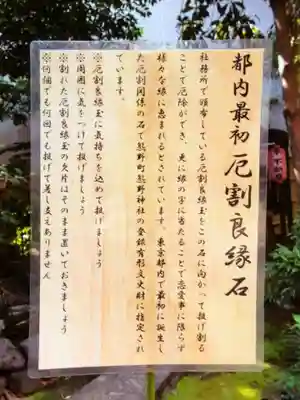 都内最初厄割良縁石
社務所で頒布している厄割良縁玉をこの石に向かって投げ割る
ことで厄除ができ、更に縁の字に当たることで恋愛事に限らず
様々な縁に恵まれるとされています。東京都内で最初に誕生し
た厄割関係の石で熊野町熊野神社の登録有形文史財に指定され
ています。
※厄割良縁玉に気持ちを込めて投げましょう
※周囲に気をつけて投げましょう
※割れた厄割良縁玉の欠片はそのまま置いておきましょう
※何個でも何回でも投げて差し支えありません